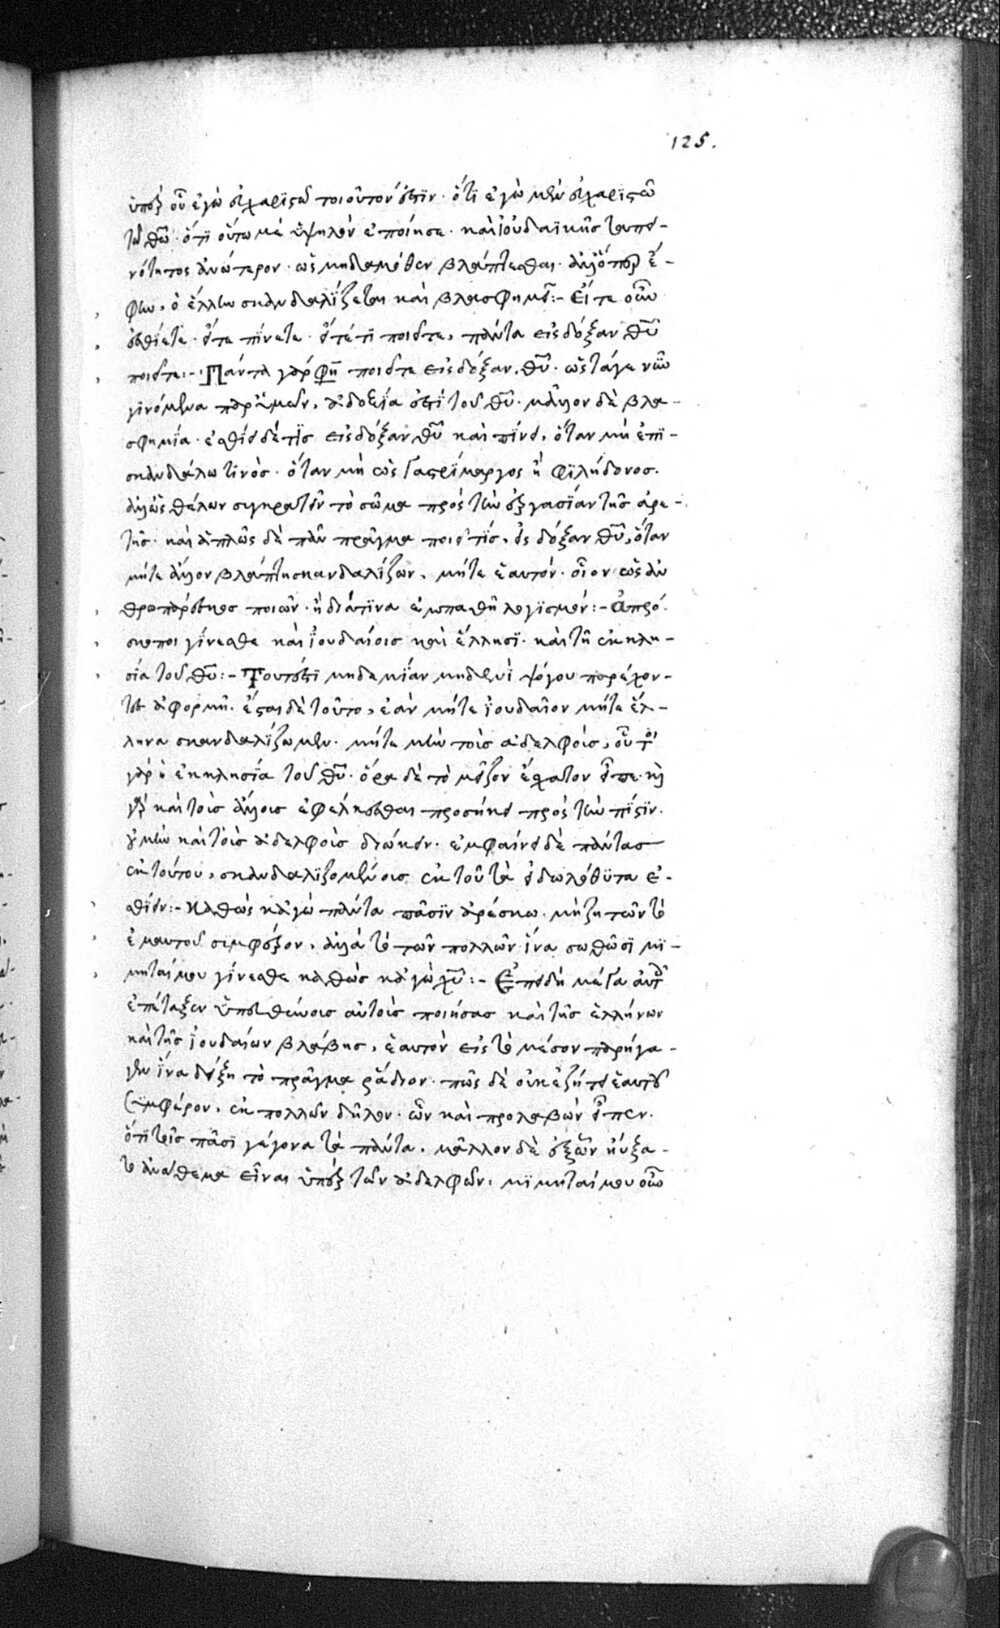 125.
ὑπὲρ οὗ ἐγὼ εὐχαριστῶ τοιοῦτον ἐστὶν· ὅτι ἐγὼ μὲν εὐχαριστῶ
τῶ θῶ· ὅτι οὕτω με ὑψηλὸν ἐποίησε· καὶ ἰουδαϊκῆς ταπει-
νότητος ἀνώτερον· ὡς μηδαμόθεν βλάπτεσθαι· ἀλλ' ὅπερ ἔ-
φην, ὁ ἕλλην σκανδαλίζεται καὶ βλασφημεῖ:- Εἴτε οὖν
ἐσθίετε· εἴτε πίνετε· εἴτέ τι ποιεῖτε, πάντα εἰς δόξαν θῦ
ποιεῖτε:- Πάντα γὰρ φησὶ ποιεῖτε εἰς δόξαν θῦ· ὡς τάγε νῦν
γινόμενα παρ' ἡμῶν, ἀδοξία ἐστὶ τοῦ θῦ· μᾶλλον δὲ βλα-
σφημία· ἐσθίει δέ τις εἰς δόξαν θῦ καὶ πίνει, ὅταν μὴ ἐπὶ
σκανδάλω τινὸς· ὅταν μὴ ὡς γαστρίμαργος ἢ φιλήδονος·
ἀλλ' ὡς θέλων συγκρατεῖν τὸ σῶμα πρὸς τὴν ἐργασίαν τῆς ἀρε-
τῆς· καὶ ἁπλῶς δὲ πᾶν πρᾶγμα ποιεῖ τίς, εἰς δόξαν θῦ, ὅταν
μήτε ἄλλον βλάπτη σκανδαλίζων, μήτε ἑαυτόν· οἷον ὡς ἀν
θρωπάρεσκος ποιῶν· ἢ διά τινα ἐμπαθῆ λογισμόν:- Ἀπρόσ-
κοποι γίνεσθε καὶ ἰουδαίοις καὶ ἕλλησι· καὶ τῆ ἐκκλη-
σία τοῦ θῦ:- Τουτέστι μηδεμίαν μηδενὶ ψόγου παρέχον-
τες ἀφορμὴν· ἔσται δὲ τοῦτο, ἐὰν μήτε ἰουδαῖον μήτε ἕλ-
ληνα σκανδαλίζωμεν· μήτε μὴν τοῖς ἀδελφοῖς, οὗτοι
γὰρ ἡ ἐκκλησία τοῦ θῦ· ὅρα δὲ τὸ μεῖζον ἔσχατον εἶπε· καὶ
γὰρ καὶ τοὺς ἄλλους ἐφέλκεσθαι προσήκει πρὸς τὴν πίστιν·
καὶ τοὺς ἀδελφοὺς διώκειν· ἐμφαίνει δὲ πάντας
ἐκ τούτου, σκανδαλιζομένους ἐκ τοῦ τὰ εἰδωλόθυτα ἐ-
σθίειν:- Καθὼς κἀγὼ πάντα πᾶσιν ἀρέσκω· μὴ ζητῶν τὸ
ἐμαυτοῦ συμφέρον, ἀλλὰ τὸ τῶν πολλῶν ἵνα σωθῶσι μι-
μηταί μου γίνεσθε καθὼς κἀγὼ χῦ:- Ἐπειδὴ μέγα αὐτοῖς
ἐπέταξεν ὑπευθύνους αὐτοὺς ποιήσας καὶ τῆς ἑλλήνων
καὶ τῆς ἰουδαίων βλάβης, ἑαυτὸν εἰς τὸ μέσον παρήγα-
γεν ἵνα δείξη τὸ πρᾶγμα ῥάδιον· πῶς δὲ οὐκ ἐζήτει ἑαυτοῦ
συμφέρον, ἐκ πολλῶν δῆλον· ὧν καὶ προλαβὼν εἶπεν·
ὅτι τοῖς πᾶσι γέγονα τὰ πάντα, μᾶλλον δὲ ἐξ ὧν ηὔξα-
το ἀνάθεμα εἶναι ὑπὲρ τῶν ἀδελφῶν: μιμηταί μου οὖν